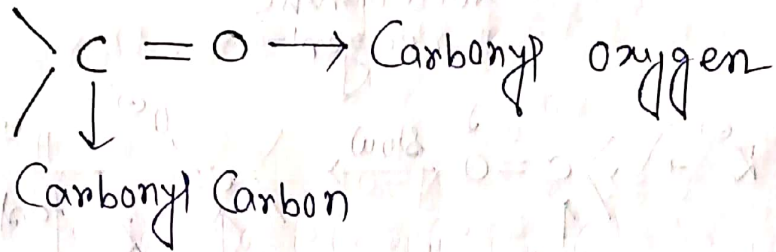 C = O → Carbonyl oxygen
Carbonyl Carbon